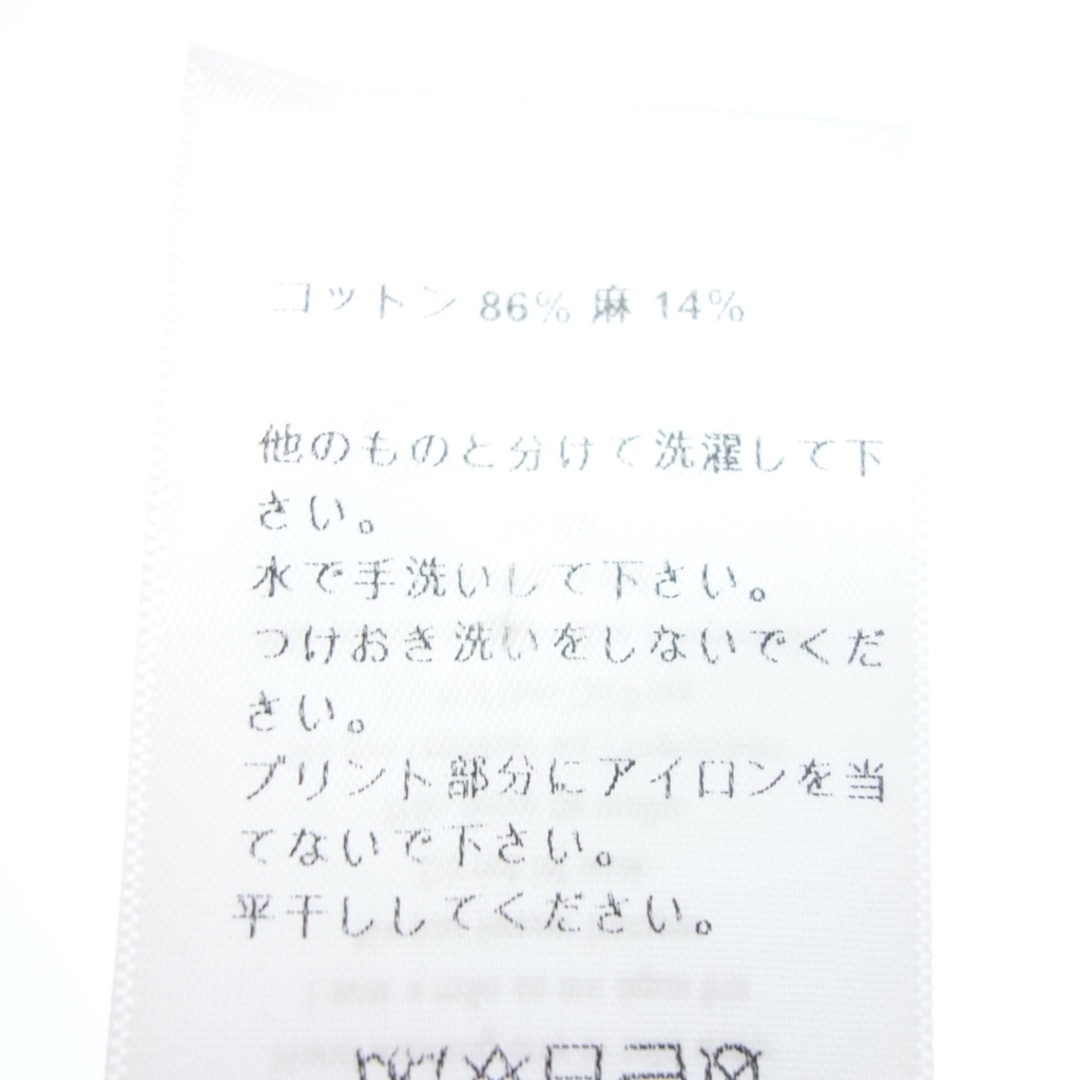 コットン 86% 麻 14%
他のものと分けて洗濯して下
さい。
水で手洗いして下さい。
つけおき洗いをしないでくだ
さい。
プリント部分にアイロンを当
てないで下さい。
平干ししてください。